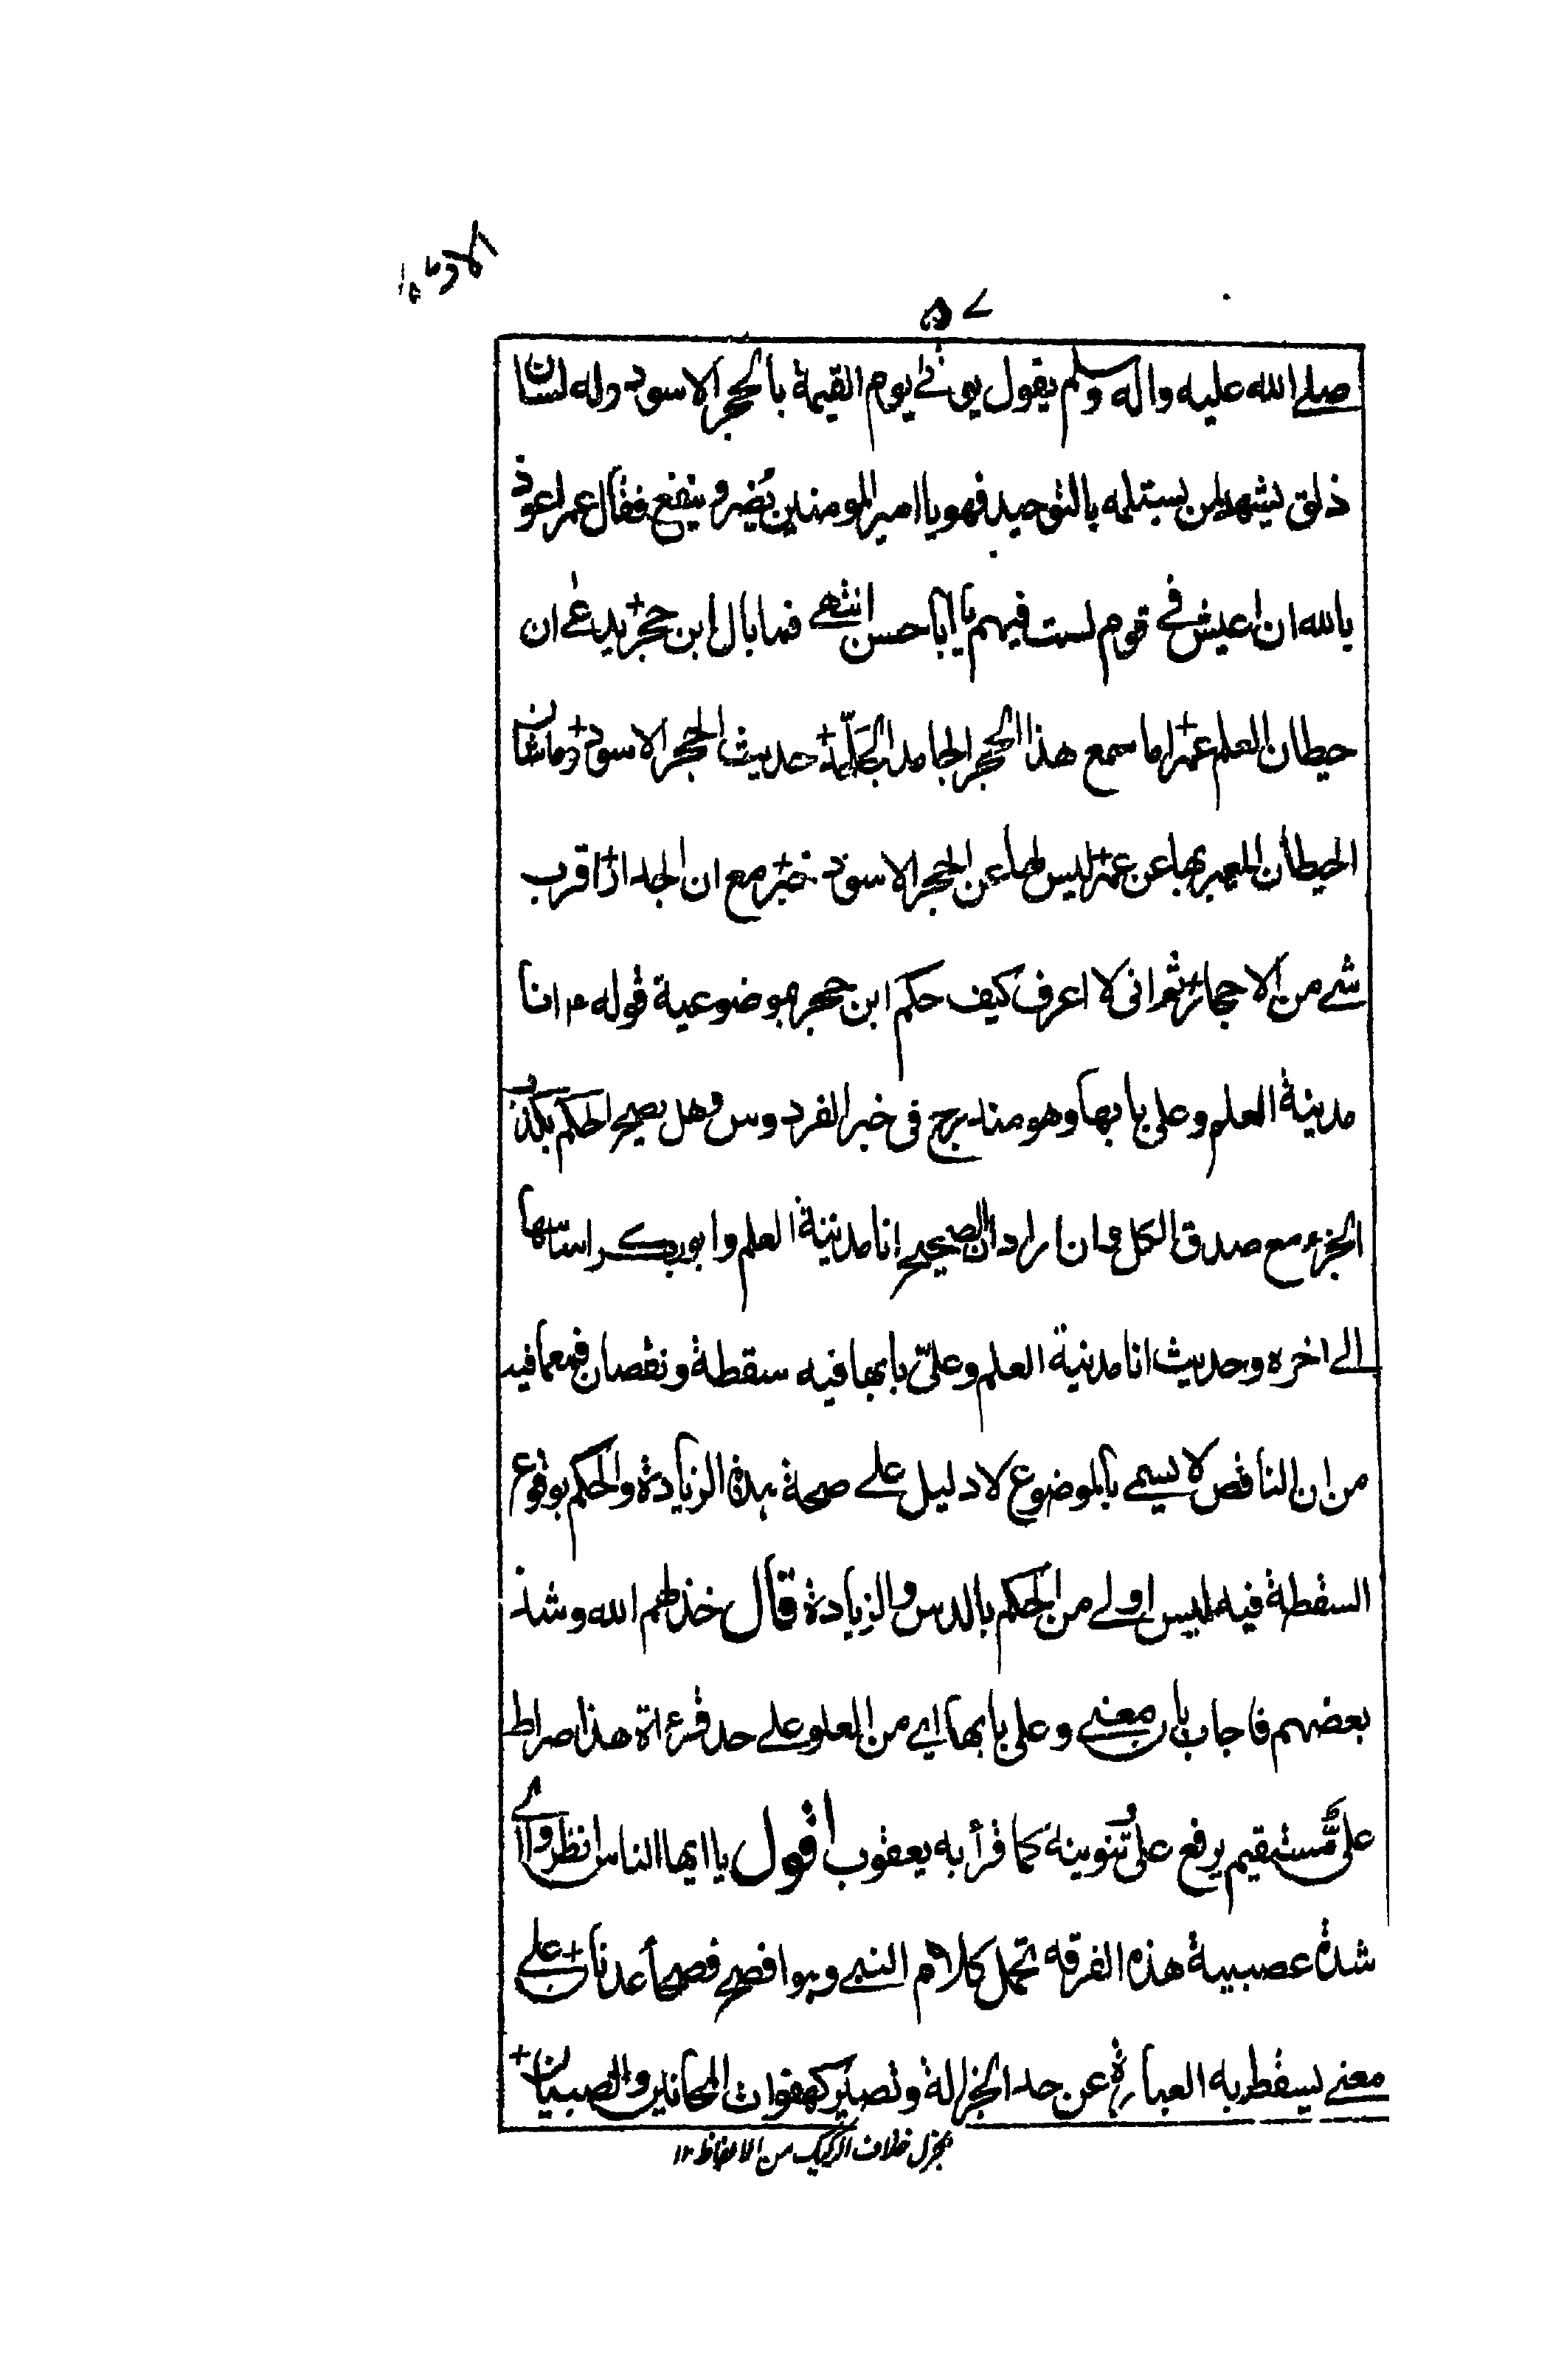 ٥٧
صلے الله عليه واله وسلم يقول يوتى يوم القيمة بالحجر الاسود وله لسان
ذلق يشهد لمن يستلمه بالتوحيد فهو يا امير المومنين يضر و ينفع فقال عمر اعوذ
بالله ان اعيش فے قوم لست فيهم يا ابا حسن انتهے فما بال ابن حجر يدعے ان
حيطان العلم عمر اما سمع هذا الحجر الجامد حديث الحجر الاسود وما شان
الحيطان المعبر بها عن عمر ليس لها عن الحجر الاسود خبر مع ان الجدار اقرب
شے من الاحجار ثم انى لا اعرف كيف حكم ابن حجر بموضوعية قوله ۴ انا
مدينة العلم وعلى بابها وهو مندرج فى خبر الفردوس وهل يصح الحكم بكذب
الجزء مع صدق الكل وان اراد ان الصحيح انا مدينة العلم وابو بكر اساسها
الے اخره وحديث انا مدينة العلم وعلىّ بابها فيه سقطة ونقصان فمع ما فيه
من ان الناقص لا يسمے بالموضوع لا دليل علے صحة هذه الزيادة والحكم بوقوع
السقطة فيه ليس اولے من الحكم بالدس والزيادة قال خذلهم الله وشذ
بعضهم فاجاب بان معنے وعلى بابها اى من العلو علے حد قرءاة هذا صراط
علىٌّ مستقيم برفع علىٌّ وتنوينه كما قرأ به يعقوب اقول يا ايها الناس انظروا الے
شدة عصبية هذه الفرقه تحمل كلام النبے وهو افصح فصحاء عدنان علے
معنے يسقط به العبارة عن حد الجزالة وتصير كهفوات المجانين والصبيان
جزل خلاف الركيك من الالفاظ ۱۲